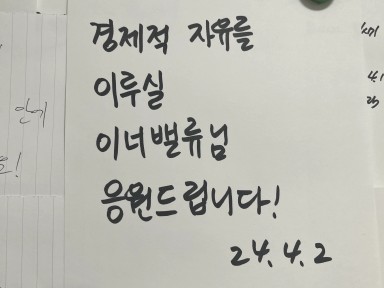 경제적 자유를
이루실
이너밸류님
응원드립니다!
24.4.2